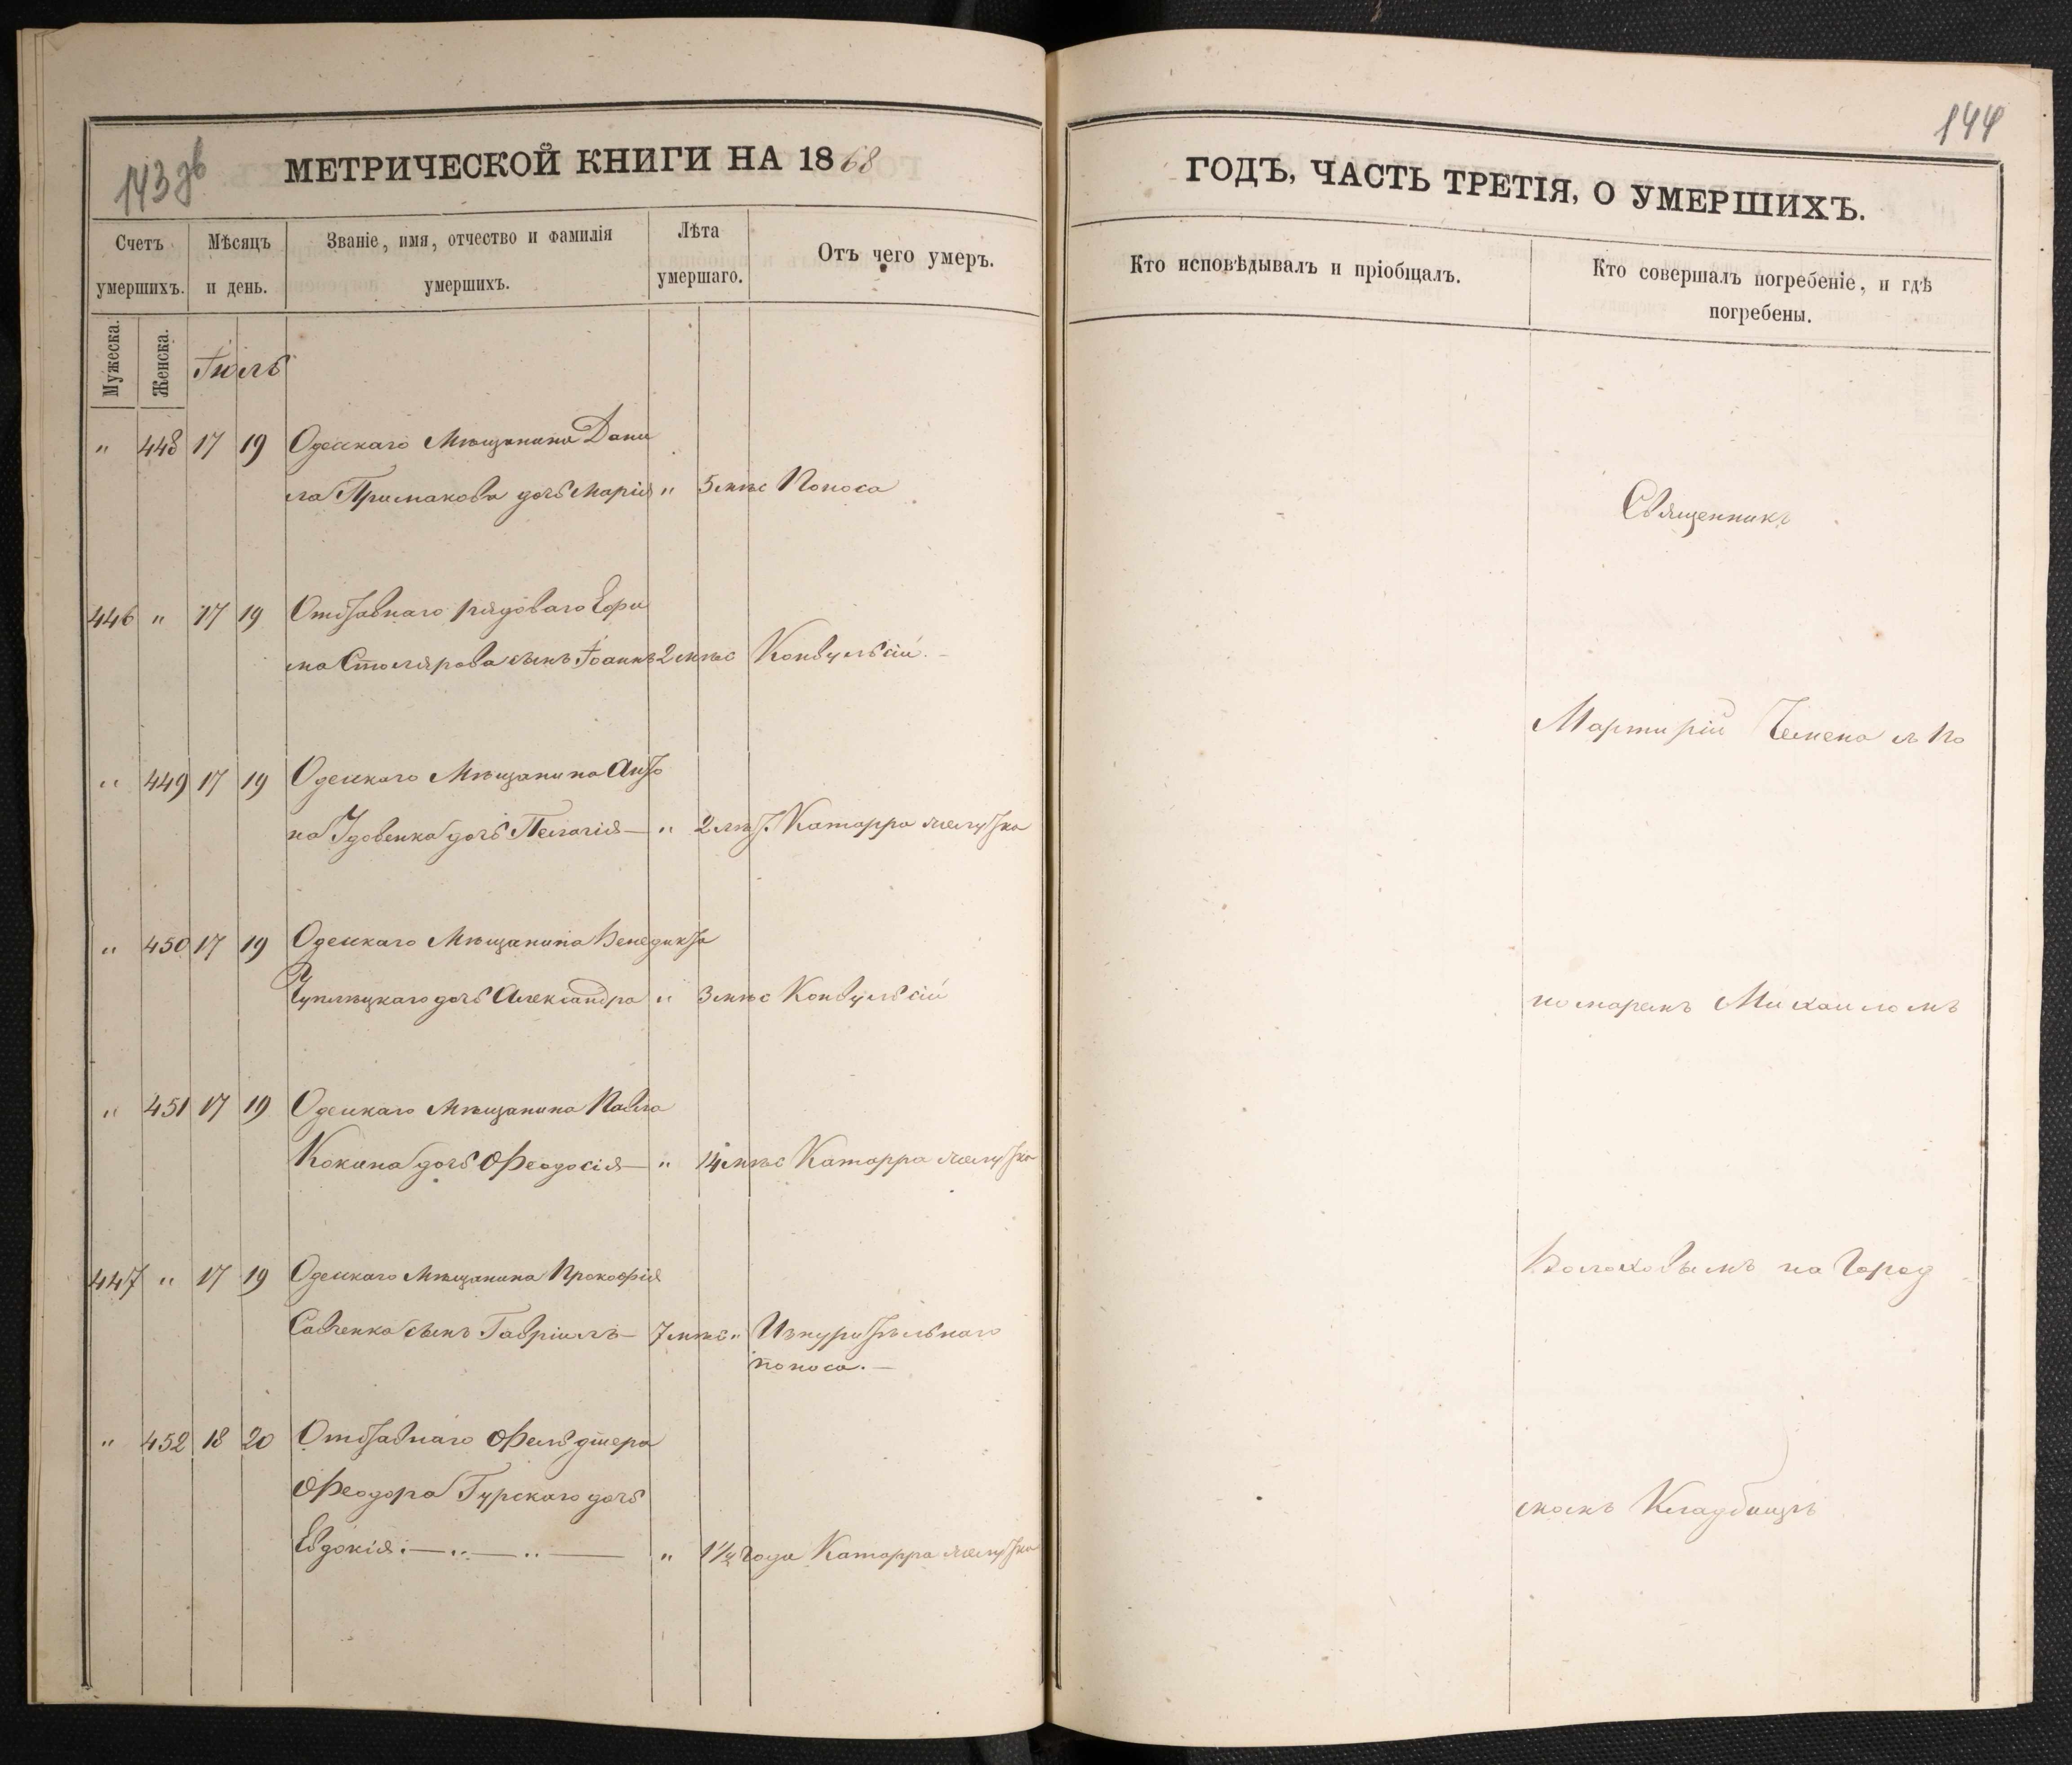 143 об
МЕТРИЧЕСКОЙ КНИГИ НА 1868
Счетъ умершихъ.
Мѣсяцъ и день.
Званіе, имя, отчество и фамилія умершихъ.
Лѣта умершаго.
Отъ чего умеръ.
Мужеска.
Женска.
Іюль
" 448 17 19 Одесскаго Мѣщанина Дани
ла Примакова дочь Марія " 5 мѣс Поноса
446 " 17 19 Отставнаго рядоваго Ефи
ма Столярова сынъ Іоаннъ 2 мѣс Конвульсій.
" 449 17 19 Одесскаго Мѣщанина Анто
на Удовенка дочь Пелагія — " 2 лѣт. Катарра желудка
" 450 17 19 Одесскаго Мѣщанина Венедикта
дочь Александра " 3 мѣс Конвульсій
" 451 17 19 Одесскаго Мѣщанина Павла
Кокина дочь Феодосія — " 14 мѣс Катарра желудка
447 " 17 19 Одесскаго Мѣщанина Прокофія
Савченка сынъ Гавріилъ — 7 мѣс "
поноса. —
" 452 18 20 Отставнаго Фельдшера
Феодора Гурскаго дочь
Евдокія: — " — " — " 1 1/2 года Катарра желудка
144
ГОДЪ, ЧАСТЬ ТРЕТІЯ, О УМЕРШИХЪ.
Кто исповѣдывалъ и пріобщалъ.
Кто совершалъ погребеніе, и гдѣ погребены.
Священникъ
Мартирій Чемена съ По
номаремъ Михаиломъ
Волоховымъ на Город
скомъ Кладбищѣ